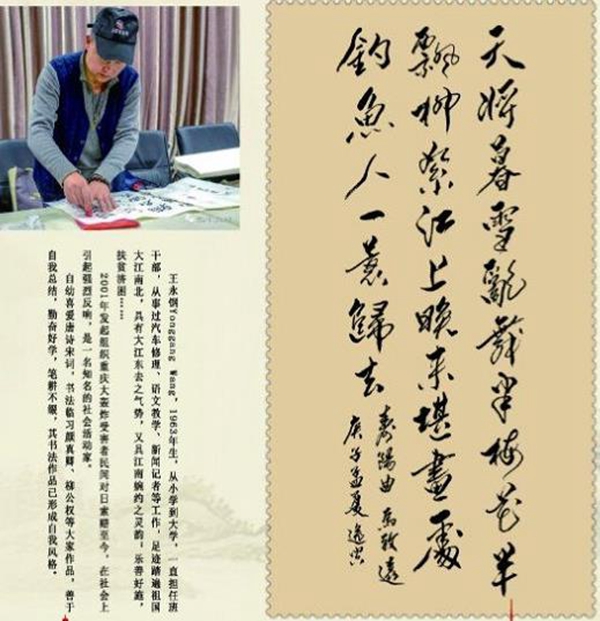 天將暮雪亂舞半梅花半
飄柳絮江上晚来堪畫處
釣魚人一蓑歸去
壽陽曲 馬致遠
庚子孟夏
王永钢Yonggang Wang，1963年生，从小学到大学，一直担任班
干部，从事过汽车修理、语文教学、新闻记者等工作，足迹踏遍祖国
大江南北，具有大江东去之气势，又具江南婉约之灵韵；乐善好施，
扶贫济困……
2001年发起组织重庆大轰炸受害者民间对日索赔至今，在社会上
引起强烈反响，是一名知名的社会活动家。
自幼喜爱唐诗宋词，书法临习颜真卿、柳公权等大家作品，善于
自我总结，勤奋好学，笔耕不辍，其书法作品已形成自我风格。